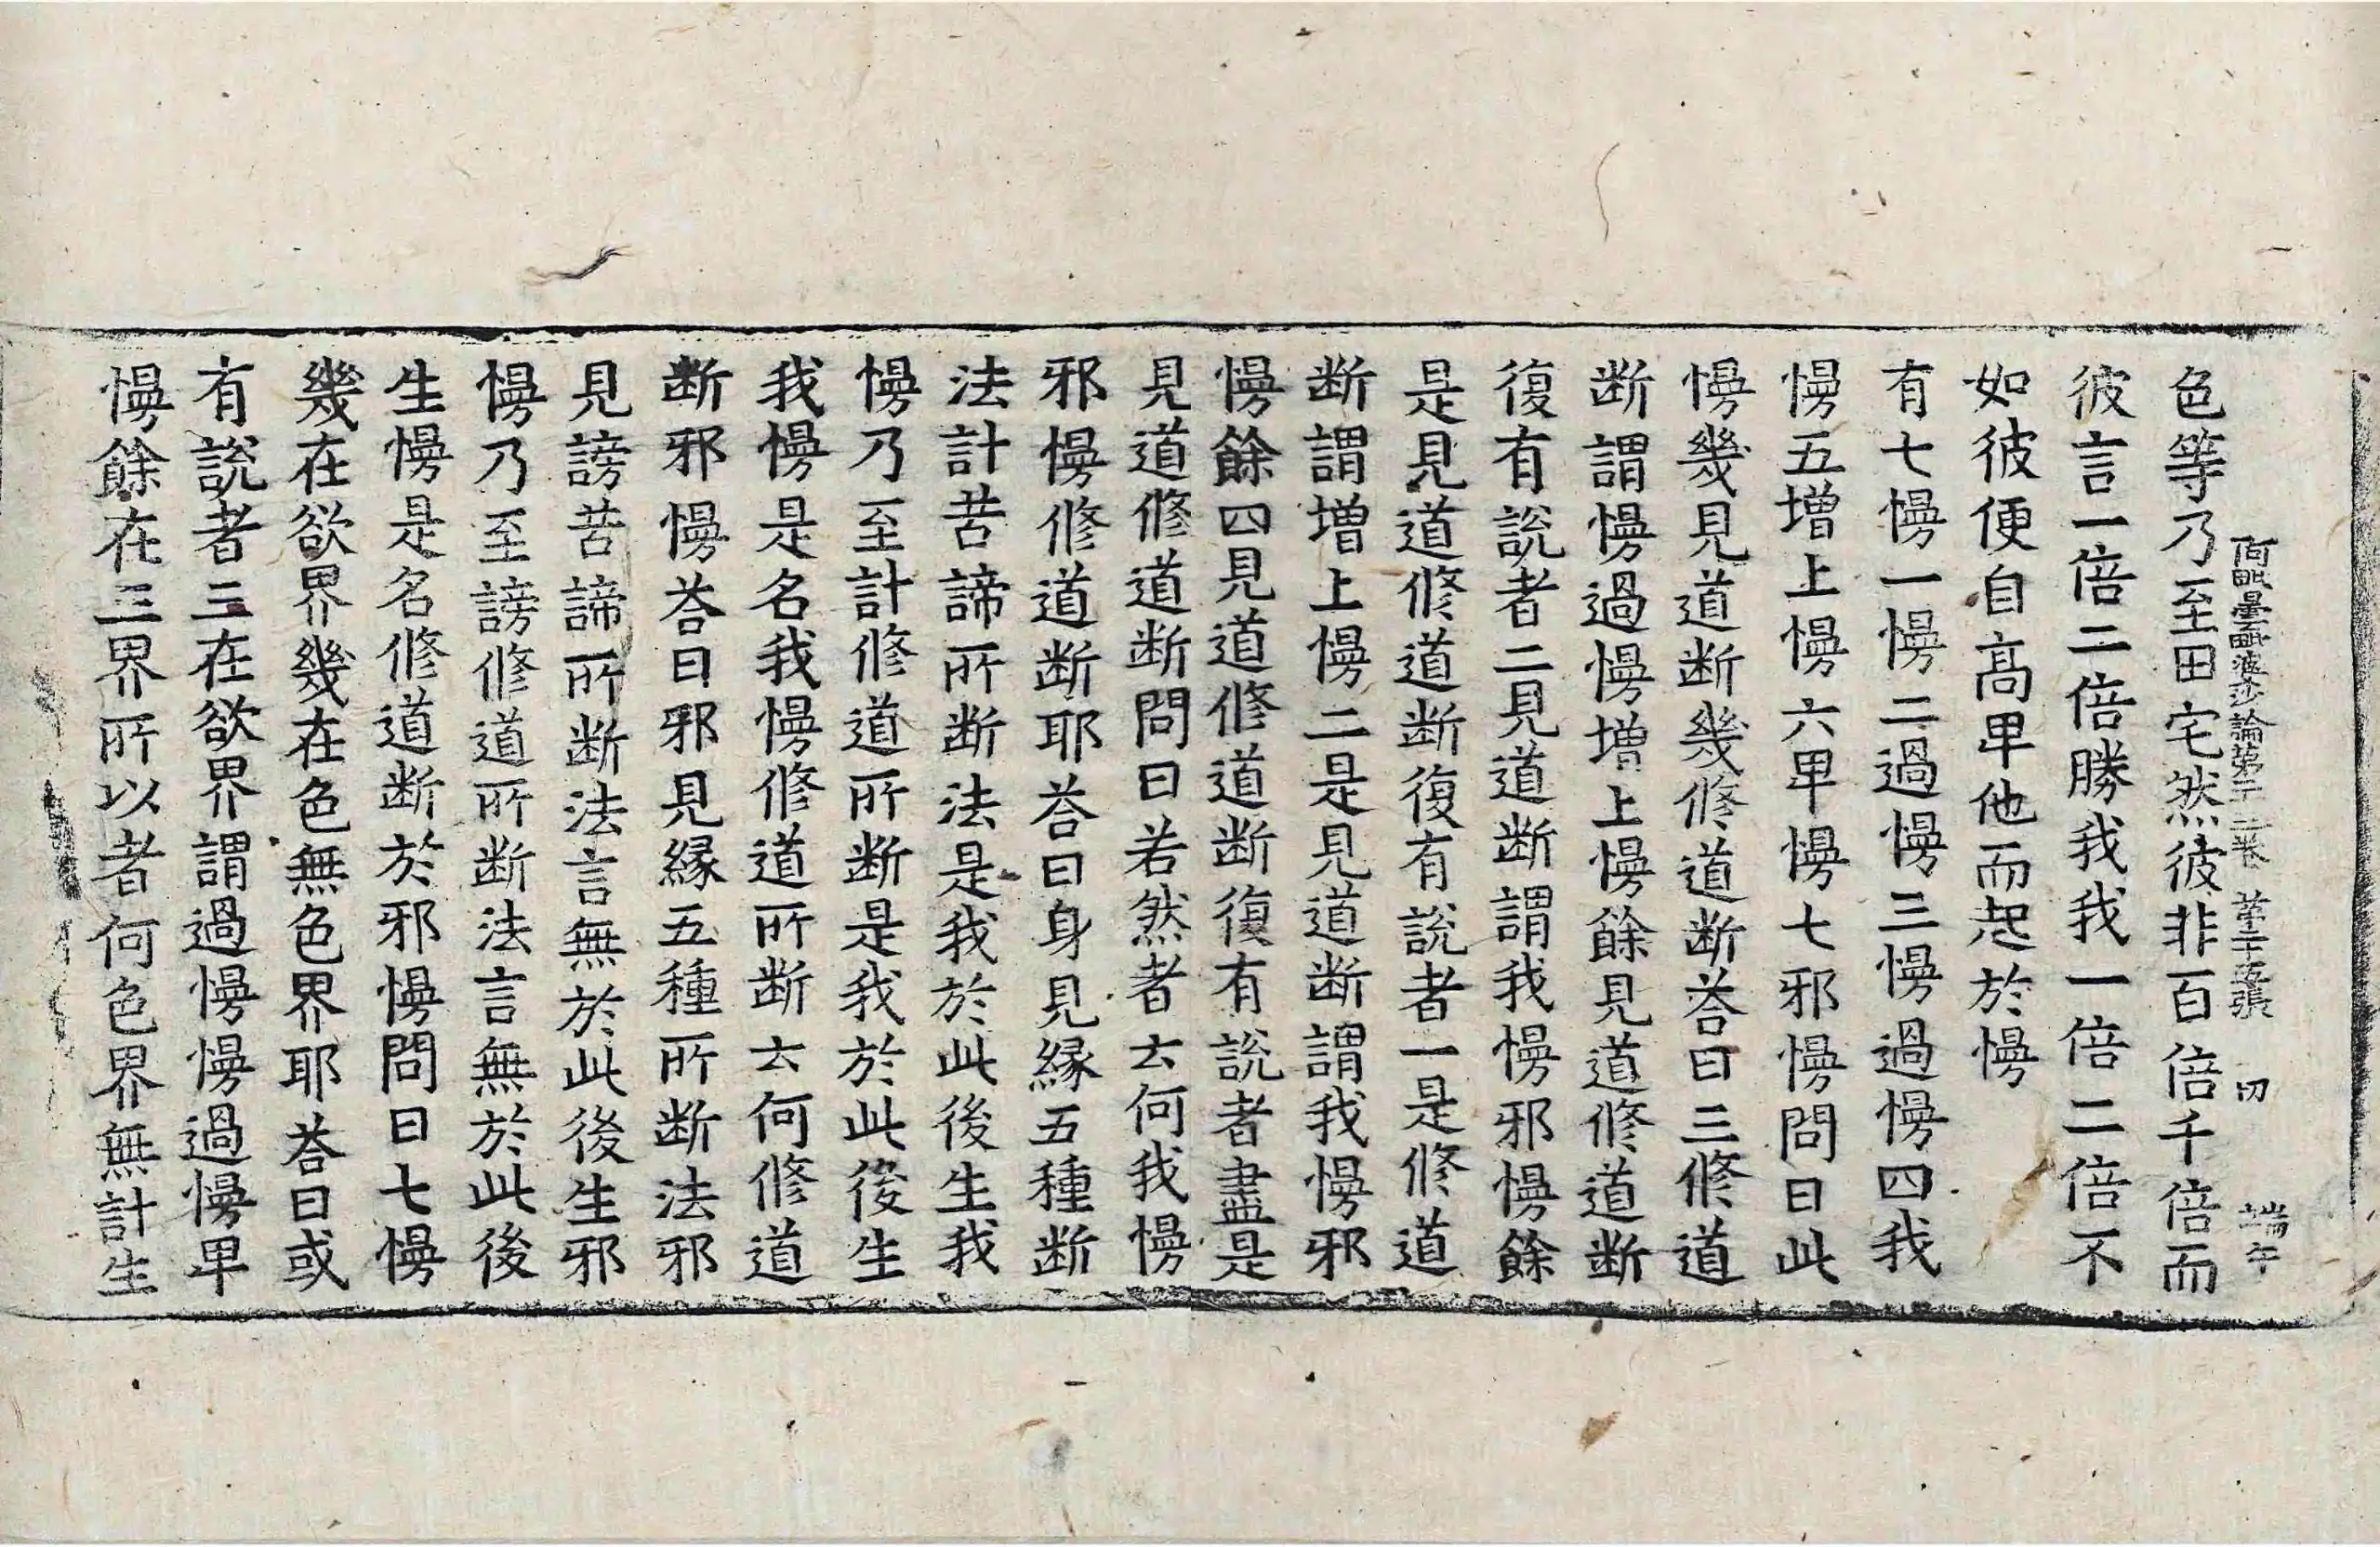 阿毗曇毗婆沙論第二十二卷 第二十五張 切 端午
色等乃至田宅然彼非百倍千倍而
彼言一倍二倍勝我我一倍二倍不
如彼便自高卑他而起於慢
有七慢一慢二過慢三慢過慢四我
慢五增上慢六卑慢七邪慢問曰此
慢幾見道断幾修道断荅曰三修道
断謂慢過慢增上慢餘見道修道断
復有說者二見道断謂我慢邪慢餘
是見道修道断復有說者一是修道
断謂增上慢二是見道断謂我慢邪
慢餘四見道修道断復有說者盡是
見道修道断問曰若然者云何我慢
邪慢修道断耶荅曰身見緣五種断
法計苦諦所断法是我於此後生我
慢乃至計修道所断是我於此後生
我慢是名我慢修道所断云何修道
断邪慢荅曰邪見緣五種所断法邪
見謗苦諦所断法言無於此後生邪
慢乃至謗修道所断法言無於此後
生慢是名修道断於邪慢問曰七慢
幾在欲界幾在色無色界耶荅曰或
有說者三在欲界謂過慢慢過慢卑
慢餘在三界所以者何色界無計生